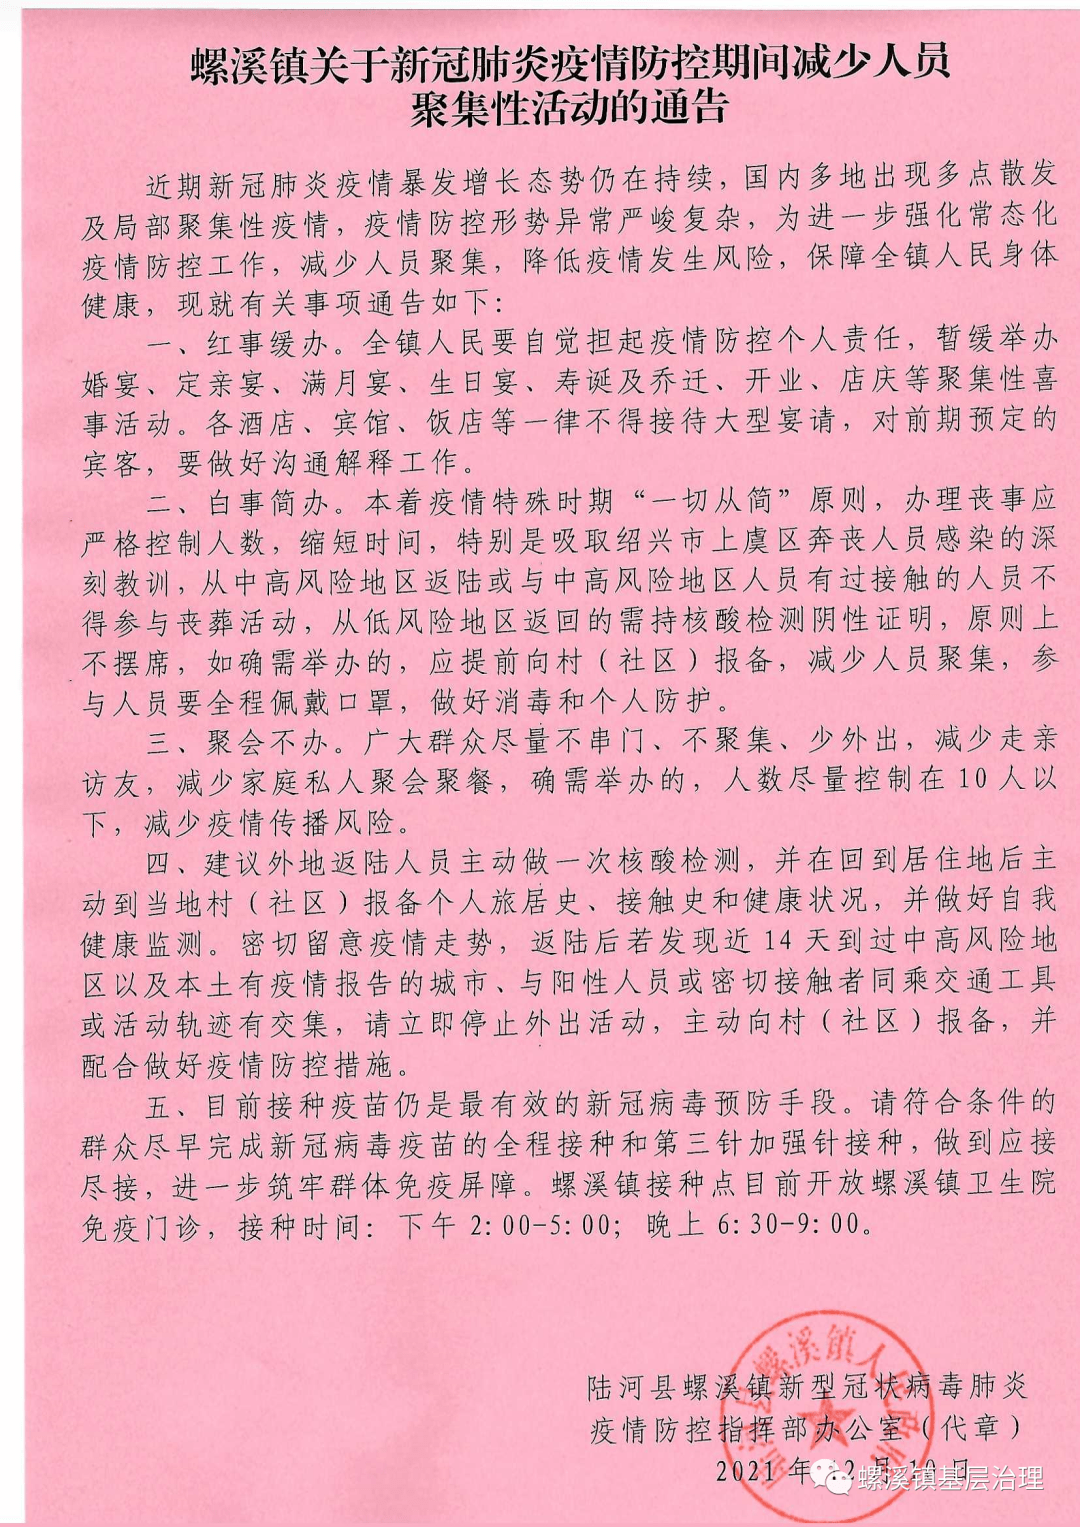 螺溪镇关于新冠肺炎疫情防控期间减少人员
聚集性活动的通告
近期新冠肺炎疫情暴发增长态势仍在持续，国内多地出现多点散发
及局部聚集性疫情，疫情防控形势异常严峻复杂，为进一步强化常态化
疫情防控工作，减少人员聚集，降低疫情发生风险，保障全镇人民身体
健康，现就有关事项通告如下：
一、红事缓办。全镇人民要自觉担起疫情防控个人责任，暂缓举办
婚宴、定亲宴、满月宴、生日宴、寿诞及乔迁、开业、店庆等聚集性喜
事活动。各酒店、宾馆、饭店等一律不得接待大型宴请，对前期预定的
宾客，要做好沟通解释工作。
二、白事简办。本着疫情特殊时期“一切从简”原则，办理丧事应
严格控制人数，缩短时间，特别是吸取绍兴市上虞区奔丧人员感染的深
刻教训，从中高风险地区返陆或与中高风险地区人员有过接触的人员不
得参与丧葬活动，从低风险地区返回的需持核酸检测阴性证明，原则上
不摆席，如确需举办的，应提前向村（社区）报备，减少人员聚集，参
与人员要全程佩戴口罩，做好消毒和个人防护。
三、聚会不办。广大群众尽量不串门、不聚集、少外出，减少走亲
访友，减少家庭私人聚会聚餐，确需举办的，人数尽量控制在10人以
下，减少疫情传播风险。
四、建议外地返陆人员主动做一次核酸检测，并在回到居住地后主
动到当地村（社区）报备个人旅居史、接触史和健康状况，并做好自我
健康监测。密切留意疫情走势，返陆后若发现近14天到过中高风险地
区以及本土有疫情报告的城市、与阳性人员或密切接触者同乘交通工具
或活动轨迹有交集，请立即停止外出活动，主动向村（社区）报备，并
配合做好疫情防控措施。
五、目前接种疫苗仍是最有效的新冠病毒预防手段。请符合条件的
群众尽早完成新冠病毒疫苗的全程接种和第三针加强针接种，做到应接
尽接，进一步筑牢群体免疫屏障。螺溪镇接种点目前开放螺溪镇卫生院
免疫门诊，接种时间：下午2:00-5:00；晚上6:30-9:00。
陆河县螺溪镇新型冠状病毒肺炎
疫情防控指挥部办公室（代章）
2021年12月10日
陆河县螺溪镇人民政府
螺溪镇基层治理